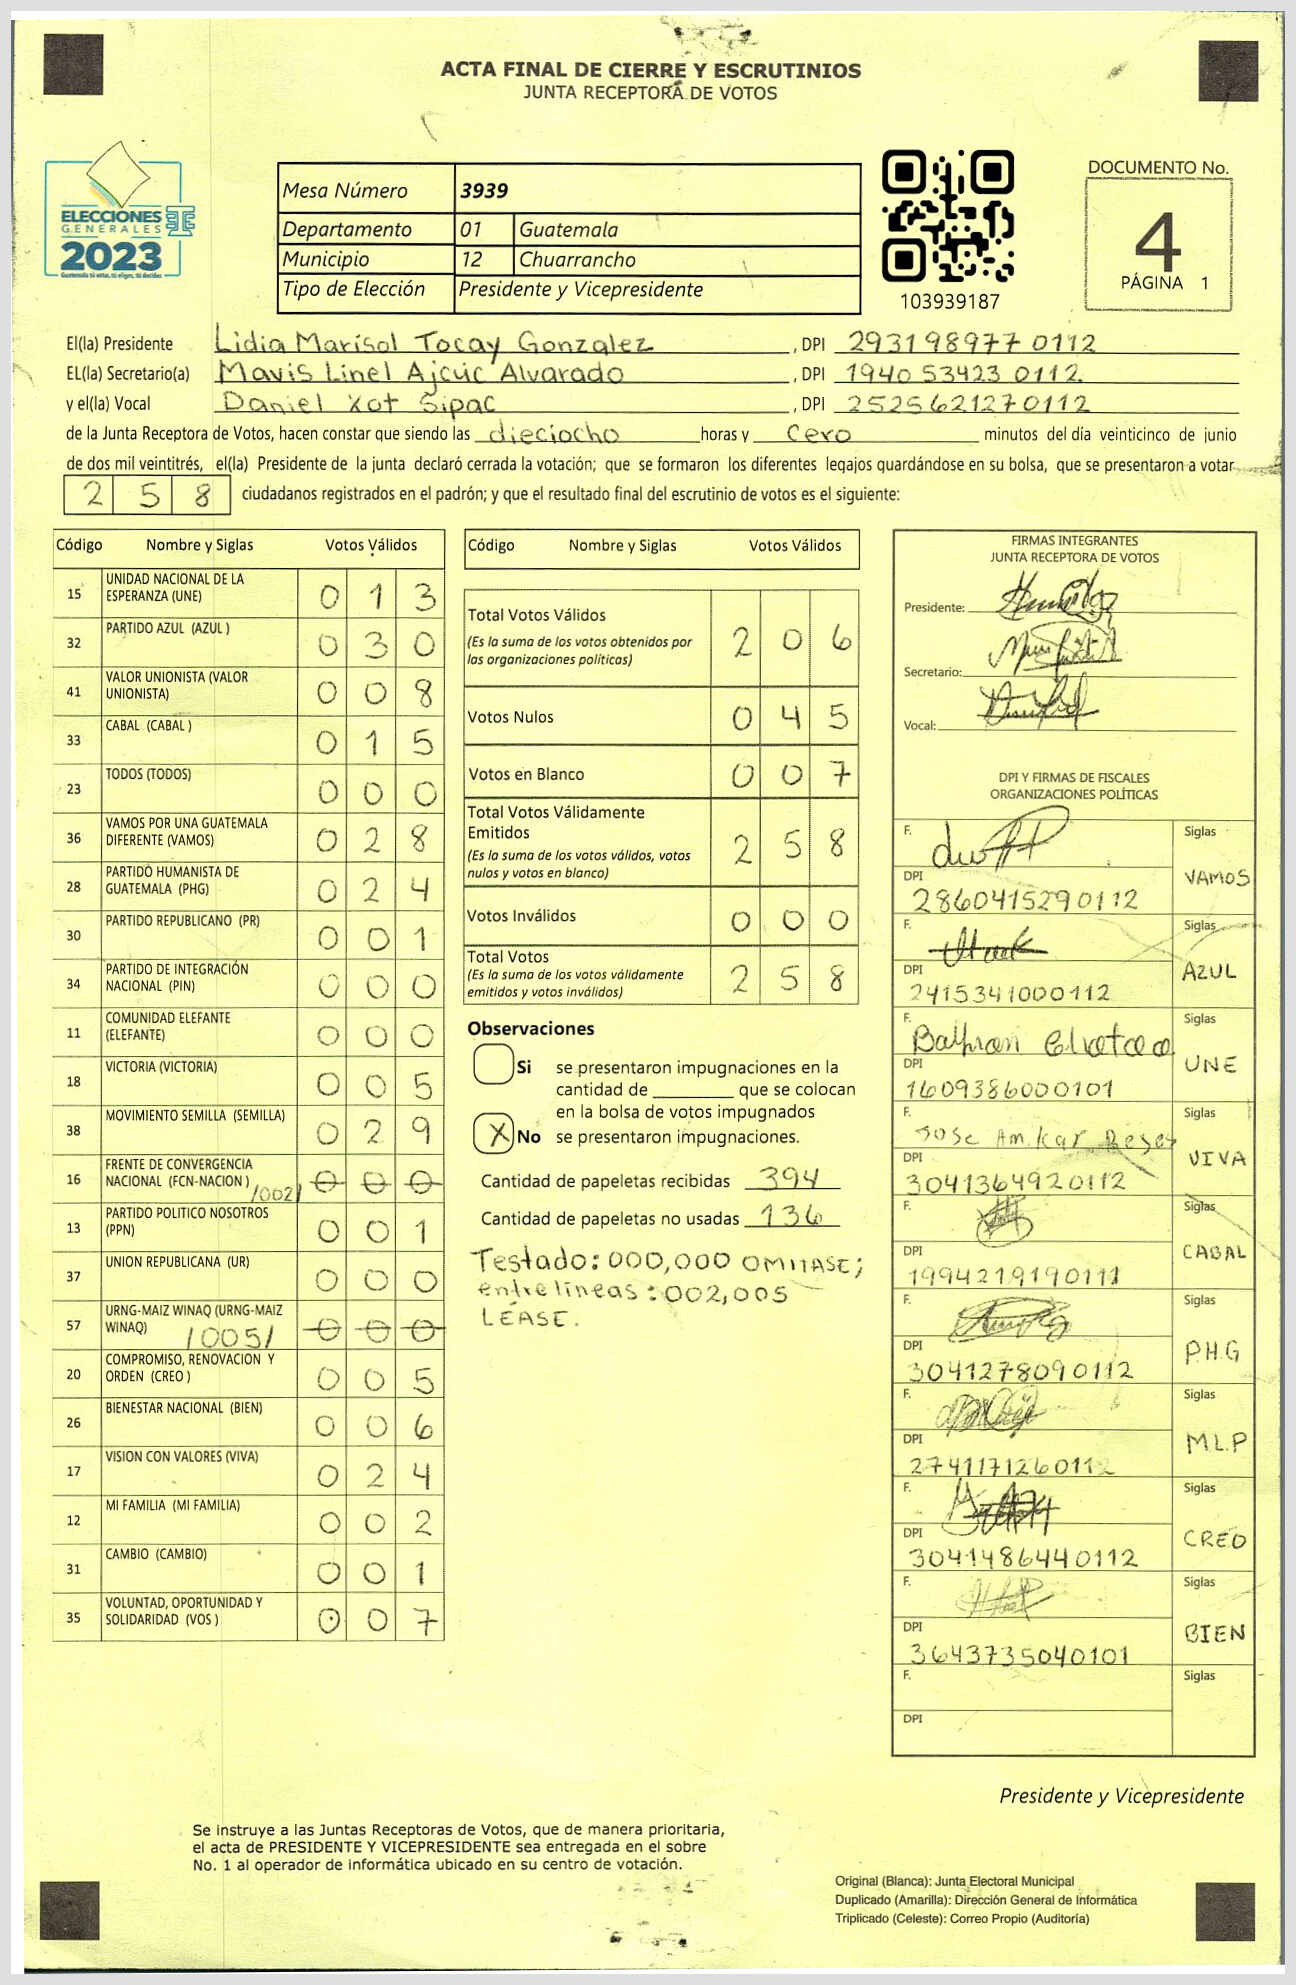 ACTA FINAL DE CIERRE Y ESCRUTINIOS
JUNTA RECEPTORA DE VOTOS
ELECCIONES
GENERALES
2023
Guatemala tú votas, tú eliges, tú decides
Mesa Número 3939
Departamento 01 Guatemala
Municipio 12 Chuarrancho
Tipo de Elección Presidente y Vicepresidente
103939187
DOCUMENTO No.
4
PÁGINA 1
El(la) Presidente Lidia Marisol Tocay Gonzalez, DPI 293198977 0112
EL(la) Secretario(a) Mavis Linel Ajcúc Alvarado, DPI 1940 53423 0112
y el(la) Vocal Daniel Xot Sipac, DPI 2525621270112
de la Junta Receptora de Votos, hacen constar que siendo las dieciocho horas y cero minutos del día veinticinco de junio
de dos mil veintitrés, el(la) Presidente de la junta declaró cerrada la votación; que se formaron los diferentes legajos quardándose en su bolsa, que se presentaron a votar
2 5 8 ciudadanos registrados en el padrón; y que el resultado final del escrutinio de votos es el siguiente:
Código Nombre y Siglas Votos Válidos
15 UNIDAD NACIONAL DE LA ESPERANZA (UNE) 0 1 3
32 PARTIDO AZUL (AZUL ) 0 3 0
41 VALOR UNIONISTA (VALOR UNIONISTA) 0 0 8
33 CABAL (CABAL ) 0 1 5
23 TODOS (TODOS) 0 0 0
36 VAMOS POR UNA GUATEMALA DIFERENTE (VAMOS) 0 2 8
28 PARTIDO HUMANISTA DE GUATEMALA (PHG) 0 2 4
30 PARTIDO REPUBLICANO (PR) 0 0 1
34 PARTIDO DE INTEGRACIÓN NACIONAL (PIN) 0 0 0
11 COMUNIDAD ELEFANTE (ELEFANTE) 0 0 0
18 VICTORIA (VICTORIA) 0 0 5
38 MOVIMIENTO SEMILLA (SEMILLA) 0 2 9
16 FRENTE DE CONVERGENCIA NACIONAL (FCN-NACION ) /002/ 0 0 0
13 PARTIDO POLITICO NOSOTROS (PPN) 0 0 1
37 UNION REPUBLICANA (UR) 0 0 0
57 URNG-MAIZ WINAQ (URNG-MAIZ WINAQ) /005/ 0 0 0
20 COMPROMISO, RENOVACION Y ORDEN (CREO ) 0 0 5
26 BIENESTAR NACIONAL (BIEN) 0 0 6
17 VISION CON VALORES (VIVA) 0 2 4
12 MI FAMILIA (MI FAMILIA) 0 0 2
31 CAMBIO (CAMBIO) 0 0 1
35 VOLUNTAD, OPORTUNIDAD Y SOLIDARIDAD (VOS ) 0 0 7
Código Nombre y Siglas Votos Válidos
Total Votos Válidos 2 0 6
(Es la suma de los votos obtenidos por
las organizaciones políticas)
Votos Nulos 0 4 5
Votos en Blanco 0 0 7
Total Votos Válidamente
Emitidos 2 5 8
(Es la suma de los votos válidos, votos
nulos y votos en blanco)
Votos Inválidos 0 0 0
Total Votos 2 5 8
(Es la suma de los votos válidamente
emitidos y votos inválidos)
Observaciones
Si se presentaron impugnaciones en la
cantidad de ________ que se colocan
en la bolsa de votos impugnados
X No se presentaron impugnaciones.
Cantidad de papeletas recibidas 394
Cantidad de papeletas no usadas 136
Testado: 000,000 OMITASE;
entre líneas: 002,005
LÉASE.
FIRMAS INTEGRANTES
JUNTA RECEPTORA DE VOTOS
Presidente:
Secretario:
Vocal:
DPI Y FIRMAS DE FISCALES
ORGANIZACIONES POLÍTICAS
F. Siglas
DPI VAMOS
2860415290112
F. Siglas
DPI AZUL
2415341000112
F. Siglas
DPI UNE
1609386000101
F. Jose Amilkar Reyes Siglas
DPI VIVA
3041364920112
F. Siglas
DPI CABAL
1994219190111
F. Siglas
DPI P.H.G
3041278090112
F. Siglas
DPI M.L.P
2741171260112
F. Siglas
DPI CREO
3041486440112
F. Siglas
DPI BIEN
3643735040101
F. Siglas
DPI
Presidente y Vicepresidente
Se instruye a las Juntas Receptoras de Votos, que de manera prioritaria,
el acta de PRESIDENTE Y VICEPRESIDENTE sea entregada en el sobre
No. 1 al operador de informática ubicado en su centro de votación.
Original (Blanca): Junta Electoral Municipal
Duplicado (Amarilla): Dirección General de Informática
Triplicado (Celeste): Correo Propio (Auditoría)